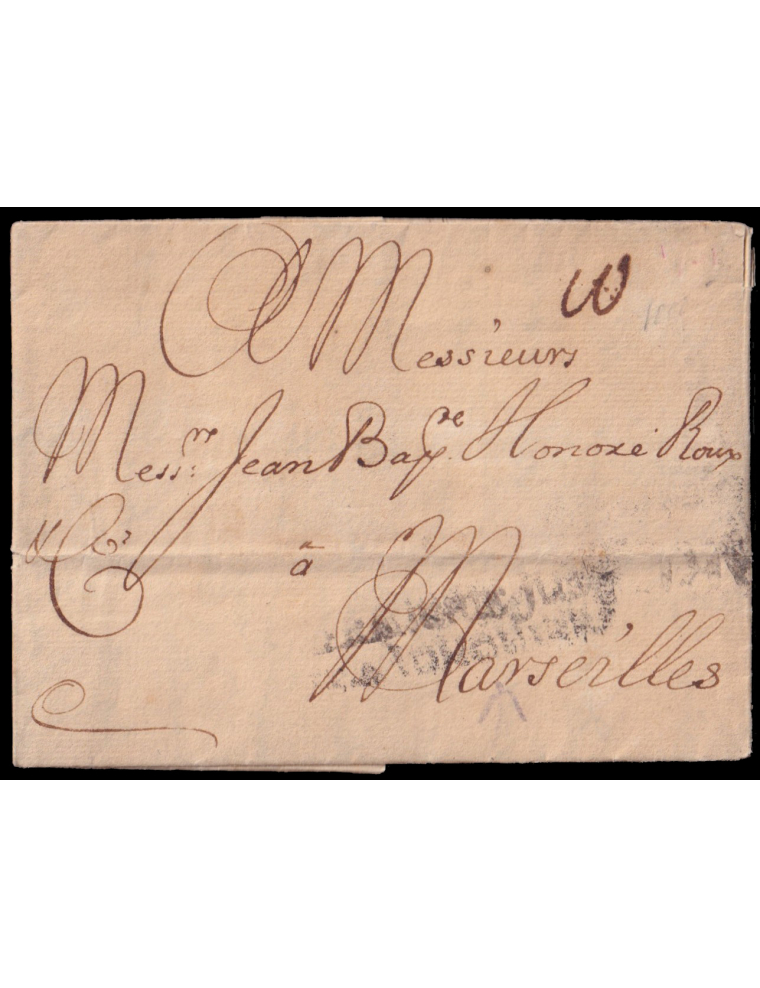 A Messieurs
Mess.rs Jean Bap.te Honoré Roux
& C.e
à
Marseilles